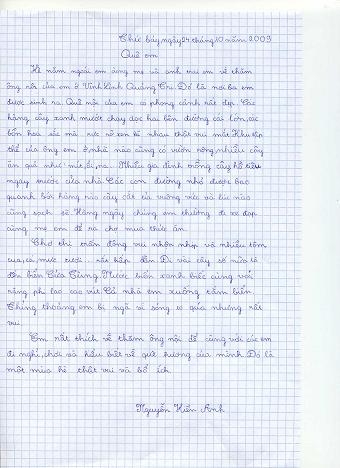 Thứ bảy, ngày 24 tháng 10 năm 2009
Quê em
Hè năm ngoái em cùng mẹ và anh trai em về thăm
ông nội của em ở Vĩnh Linh Quảng Trị. Đó là nơi ba em
được sinh ra. Quê nội của em có phong cảnh rất đẹp. Các
hàng cây xanh mướt chạy dọc hai bên đường cái lớn, các
bồn hoa sắc màu rực rỡ xen kẽ nhau thật vui mắt. Khu tập
thể của ông em ở, nhà nào cũng có vườn rộng, nhiều cây
ăn quả như: mít, ổi, na... Nhiều gia đình trồng cây hồ tiêu
ngay trước cửa nhà. Các con đường nhỏ được bao
quanh bởi hàng rào cây cắt tỉa vuông vức và lúc nào
cũng sạch sẽ. Hàng ngày chúng em thường đi xe đạp
cùng mẹ em để ra chợ mua thức ăn.
Chợ thì trần đông vui nhộn nhịp và nhiều tôm
cua, cá, mực tươi... rất hấp dẫn. Đi vài cây số nữa là
ra biển Cửa Tùng. Nước biển xanh biếc cùng với
rặng phi lao cao vút. Cả nhà em xuống tắm biển.
Chúng thoảng em bị ngã vì sóng xô quá nhưng rất
vui.
Em rất thích về thăm ông nội để cùng với các em
đi nghỉ, chơi và hiểu biết về quê hương của mình. Đó là
một mùa hè thật vui và bổ ích.
Nguyễn Hiền Anh